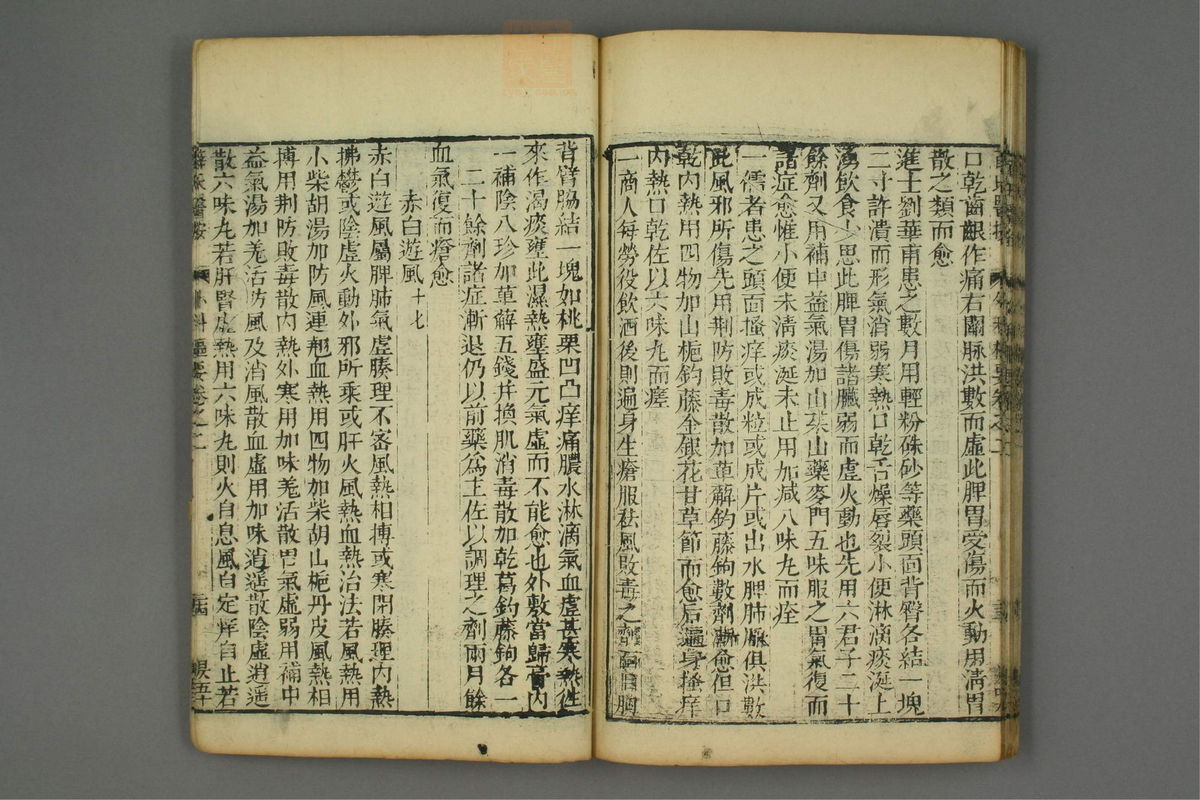 口乾齒齦作痛右關脉洪數而虛此脾胃受傷而火動用清胃
散之類而愈
進士劉華甫患之數月用輕粉硃砂等藥頭面背臀各結一塊
二寸許潰而形氣消弱寒熱口乾舌燥唇裂小便淋滴痰涎上
湧飲食少思此脾胃傷諸臟弱而虛火動也先用六君子二十
餘劑又用補中益氣湯加山茱山藥麥門五味服之胃氣復而
諸症愈惟小便未清痰涎未止用加减八味丸而痊
一儒者患之頭面搔痒或成粒或成片或出水脾肺脉俱洪數
此風邪所傷先用荆防敗毒散加萆薢鈎藤鉤數劑漸愈但口
乾內熱用四物加山梔鈎藤金銀花甘草節而愈后遍身搔痒
內熱口乾佐以六味丸而瘥
一商人每勞役飲酒後則遍身生瘡服祛風敗毒之劑面目胸
背臂腸結一塊如桃栗凹凸痒痛膿水淋滴氣血虛甚寒熱往
來作渴痰壅此濕熱壅盛元氣虛而不能愈也外敷當歸膏內
一補陰八珍加萆薢五錢并換肌消毒散加乾葛鈎藤鉤各一
二十餘劑諸症漸退仍以前藥爲主佐以調理之劑兩月餘
血氣復而瘡愈
赤白遊風十七
赤白遊風屬脾肺氣虛腠理不密風熱相搏或寒閉腠理內熱
拂鬱或陰虛火動外邪所乘或肝火風熱血熱治法若風熱用
小柴胡湯加防風連翹血熱用四物加柴胡山梔丹皮風熱相
搏用荆防敗毒散內熱外寒用加味羗活散胃氣虛弱用補中
益氣湯加羗活防風及消風散血虛用加味逍遥散陰虛逍遥
散六味丸若肝腎虛熱用六味丸則火自息風自定痒自止若
薛氏醫按 外科樞要卷之二